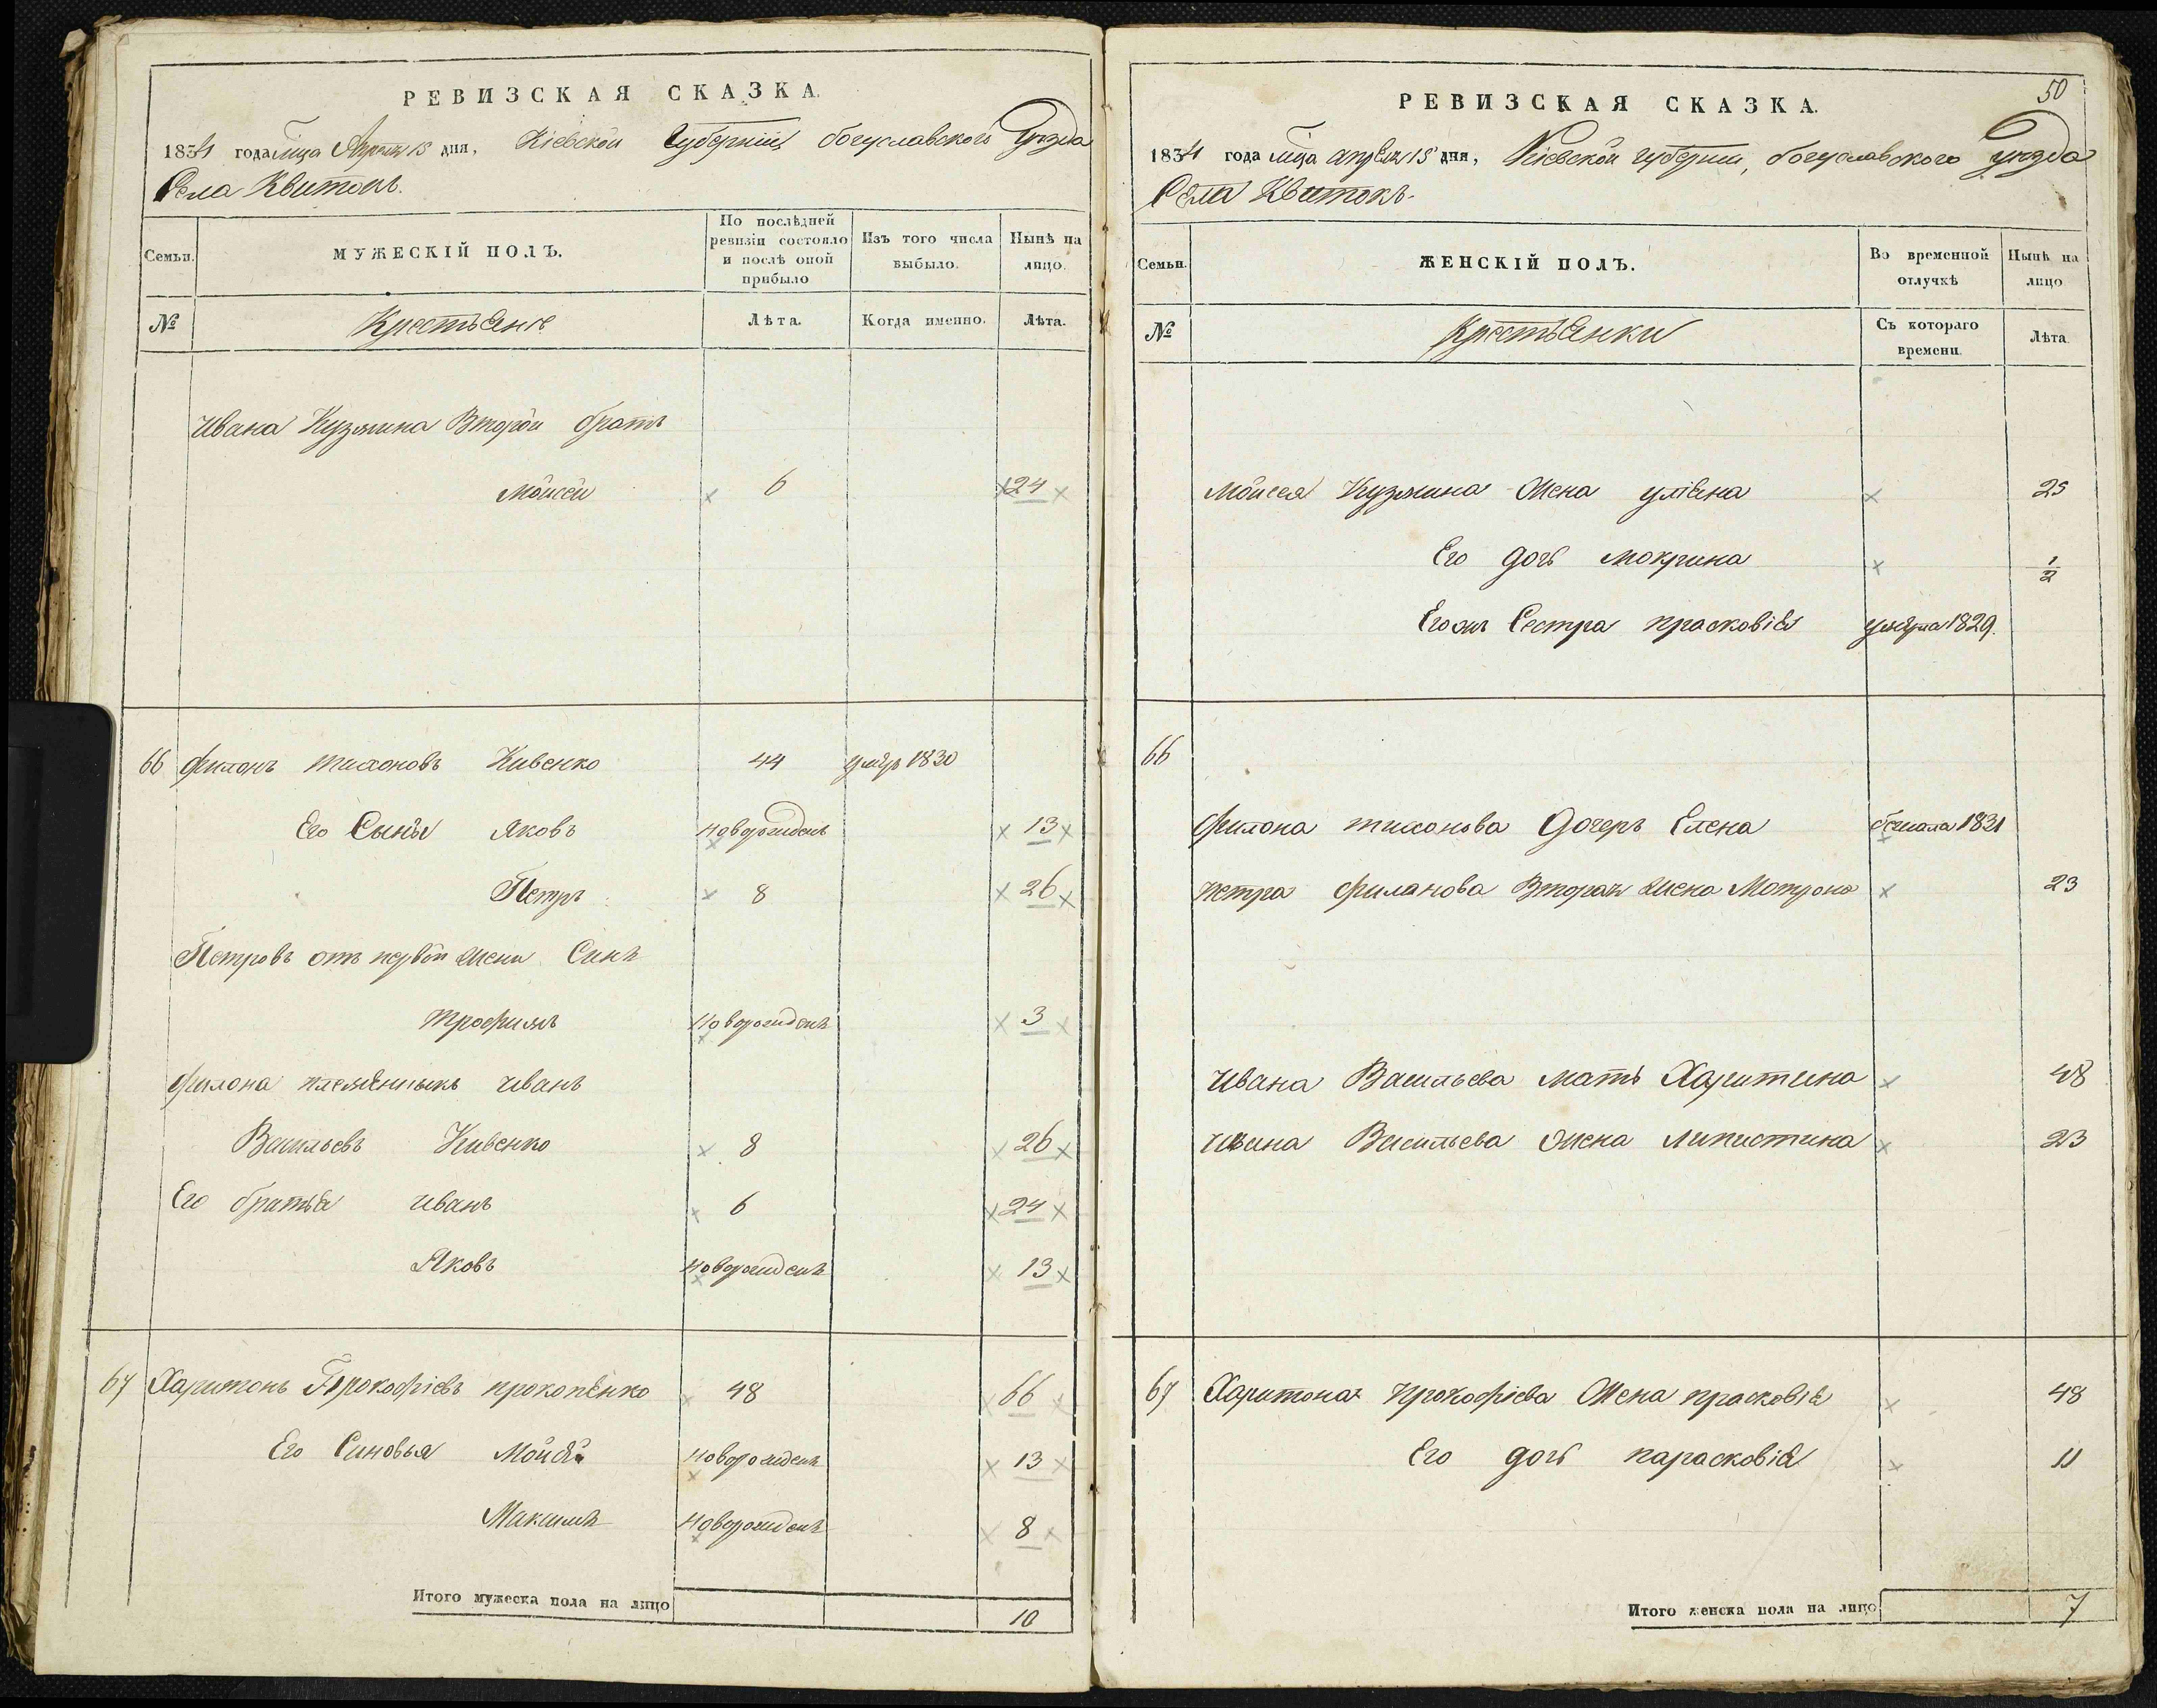 РЕВИЗСКАЯ СКАЗКА.
1834 года мца Апреля 15 дня, Кіевской Губерніи, богуславского уезда
Села Квитокъ.
Семьи.
МУЖЕСКІЙ ПОЛЪ.
По послѣдней ревизіи состояло и послѣ оной прибыло
Изъ того числа выбыло.
Нынѣ на лицо.
№
Крестьяне
Лѣта.
Когда именно.
Лѣта.
Ивана Кузмина Второй братъ
Мойсей 6 24
66 Филонъ тихоновъ Кивенко 44 умеръ 1830
Его Сыны Яковъ новорожденъ 13
Петръ 8 26
Петровъ отъ первой жени Синъ
трофимъ Новорожденъ 3
Филона племенныкъ иванъ
Васильевъ Кивенко 8 26
Его братья иванъ 6 24
Яковъ новорожденъ 13
67 Харитонъ Прокофіевъ прокопенко 48 66
Его Синовья Мойсей новорожденъ 13
Максимъ Новорожденъ 8
Итого мужеска пола на лицо 10
50
РЕВИЗСКАЯ СКАЗКА.
1834 года мца апреля 15 дня, Кіевской губерніи, богуславского уезда
Села Квитокъ.
Семьи.
ЖЕНСКІЙ ПОЛЪ.
Во временной отлучкѣ
Нынѣ на лицо
№
крестьянки
Съ котораго времени.
Лѣта.
Мойсея Кузмина Жена уліяна 25
Его дочь мокрина 1/2
Его жъ Сестра прасковія умерла 1829.
66
Филона тихонова Дочеръ Елена бежала 1831
петра филанова Вторая жена Мотрона 23
ивана Васильева мать Харитина 48
ивана Васильева Жена липистина 23
67 Харитона прокофіева Жена прасковія 48
Его дочь парасковія 11
Итого женска пола на лицо 7